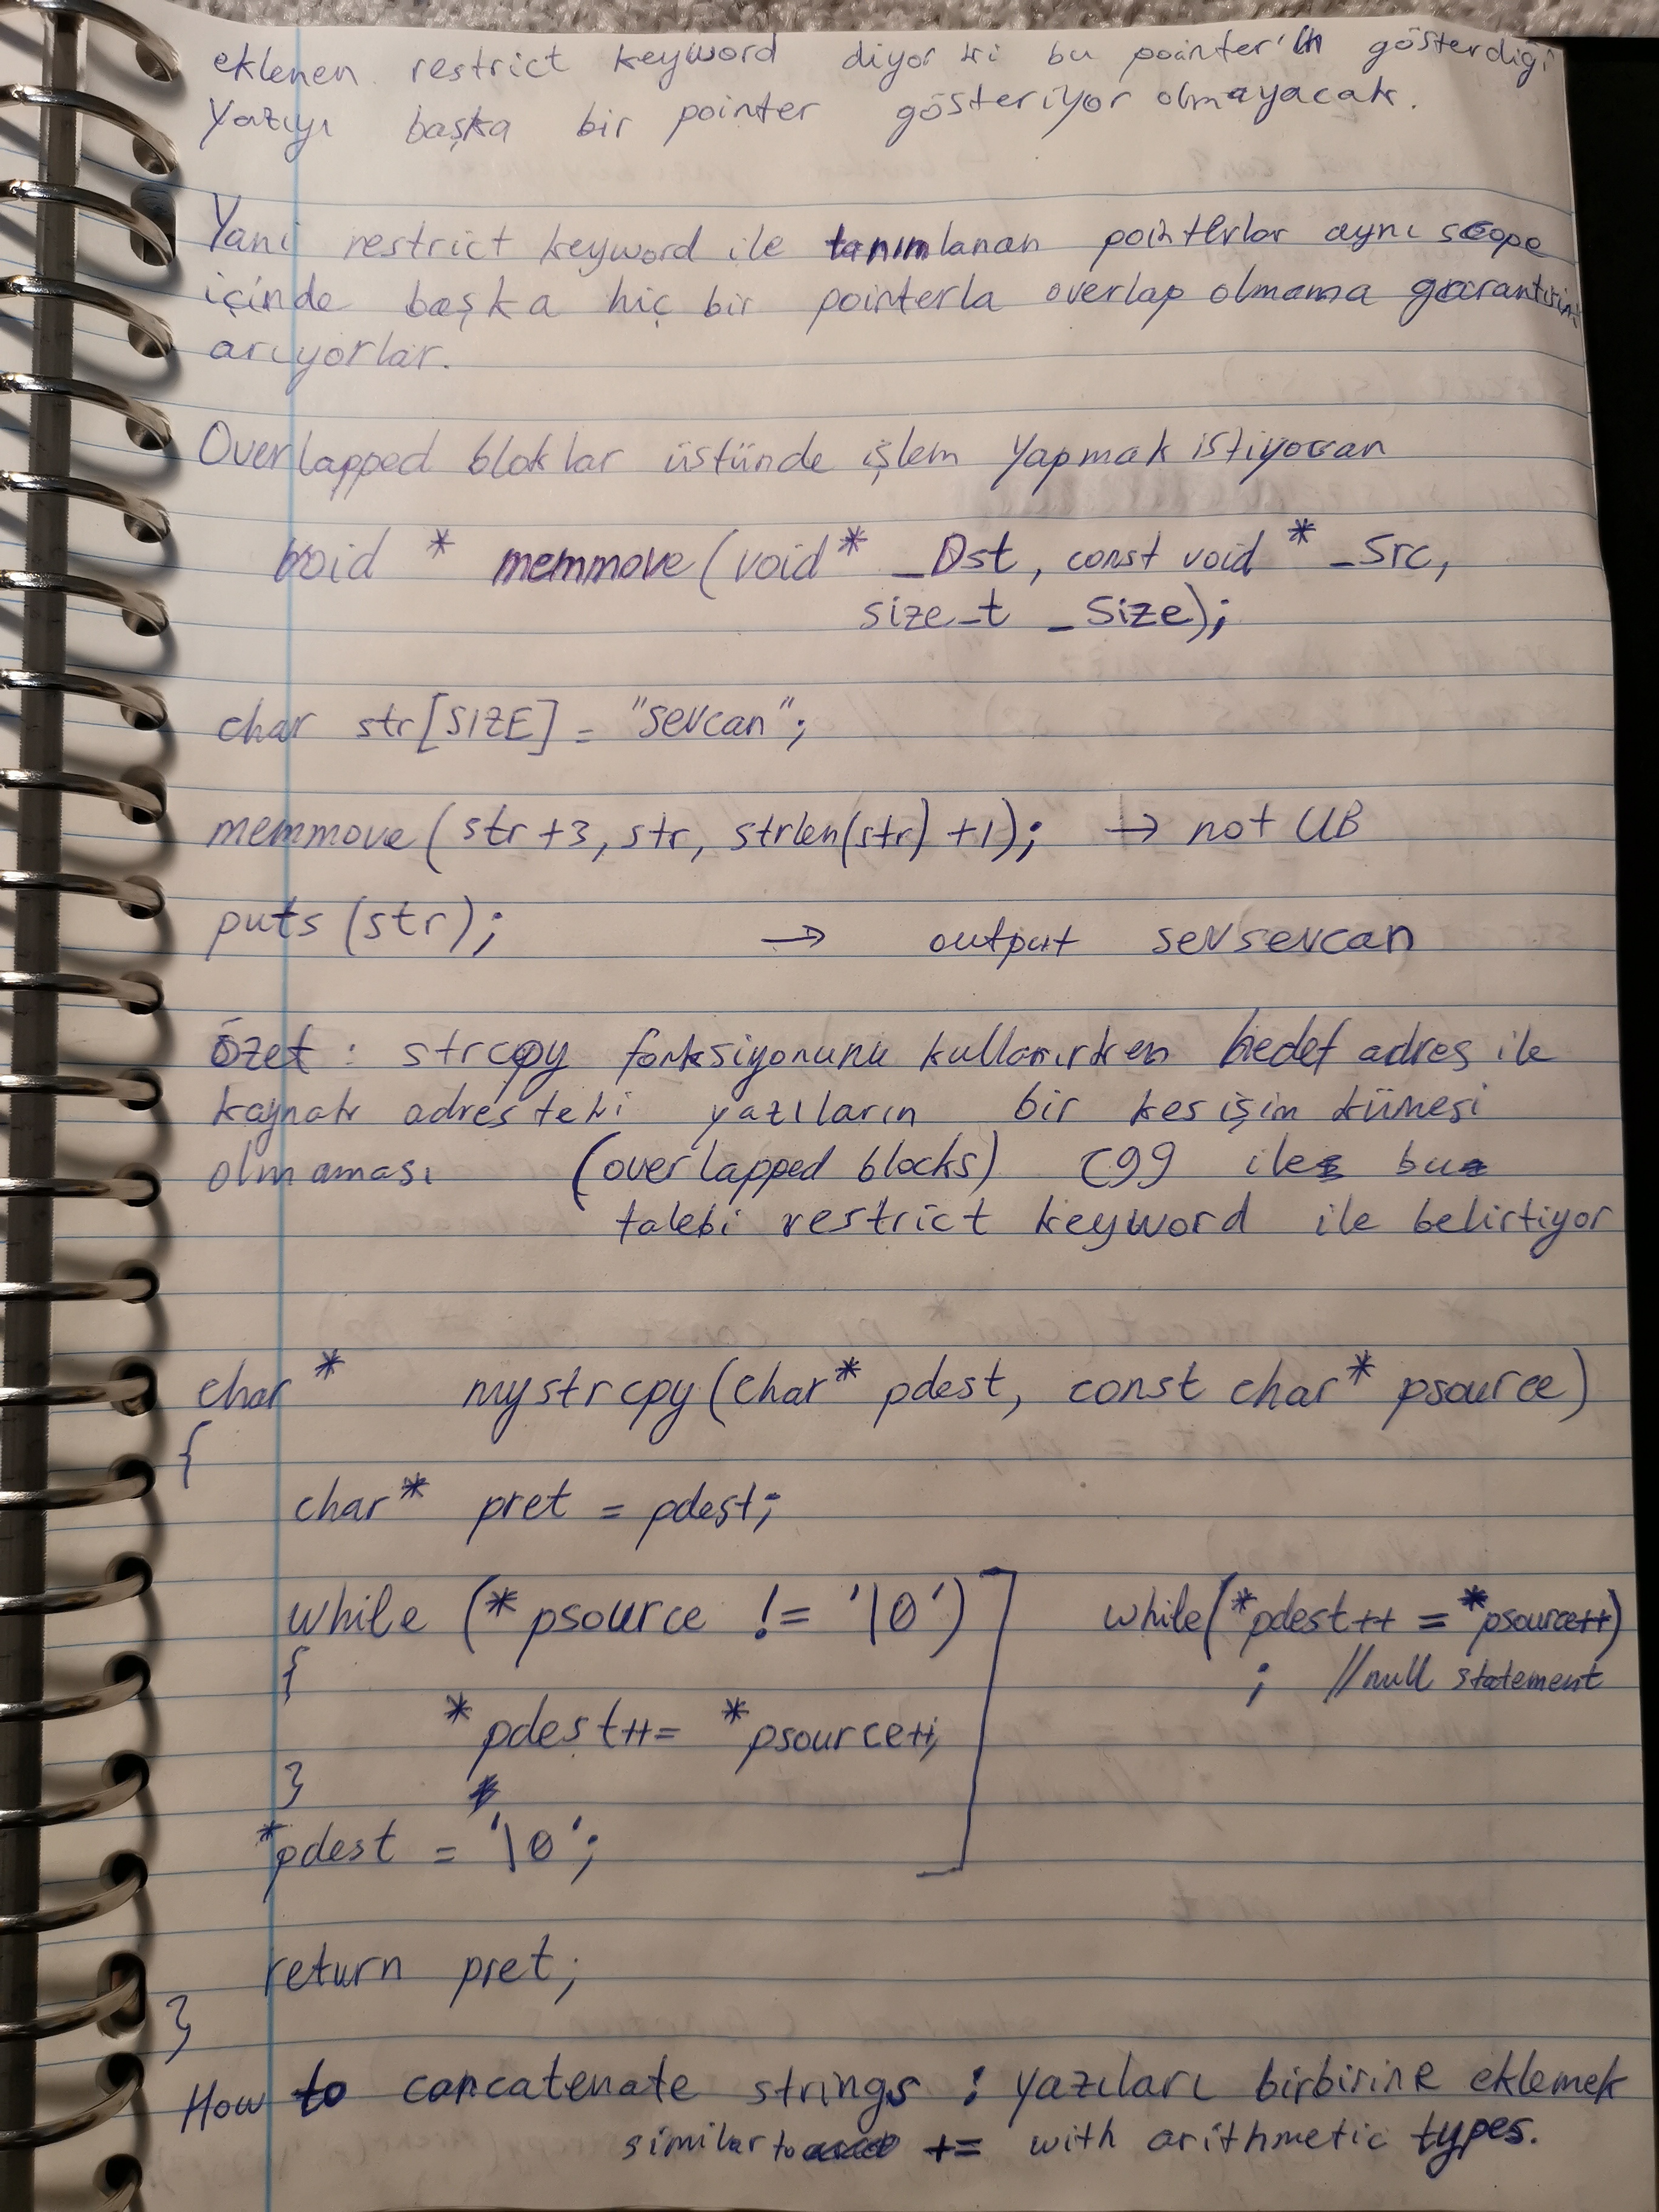 eklenen restrict keyword diyor ki bu pointer'ın gösterdiği
yazıyı başka bir pointer gösteriyor olmayacak.
Yani restrict keyword ile tanımlanan pointerlar aynı scope
içinde başka hiç bir pointerla overlap olmama garantisini
arıyorlar.
Overlapped bloklar üstünde işlem yapmak istiyorsan
void * memmove(void* _Dst, const void * _Src,
size_t _Size);
char str[SIZE] = "sevcan";
memmove(str+3, str, strlen(str)+1); → not UB
puts(str); → output sevsevcan
Özet : strcpy fonksiyonunu kullanırken hedef adres ile
kaynak adresteki yazıların bir kesişim kümesi
olmaması (overlapped blocks) C99 ile bu
talebi restrict keyword ile belirtiyor
char * mystrcpy(char* pdest, const char* psource)
{
char* pret = pdest;
while (*psource != '\0') while(*pdest++ = *psource++)
{ ; //null statement
*pdest++ = *psource++;
}
*pdest = '\0';
return pret;
}
How to concatenate strings : yazıları birbirine eklemek
similar to += with arithmetic types.